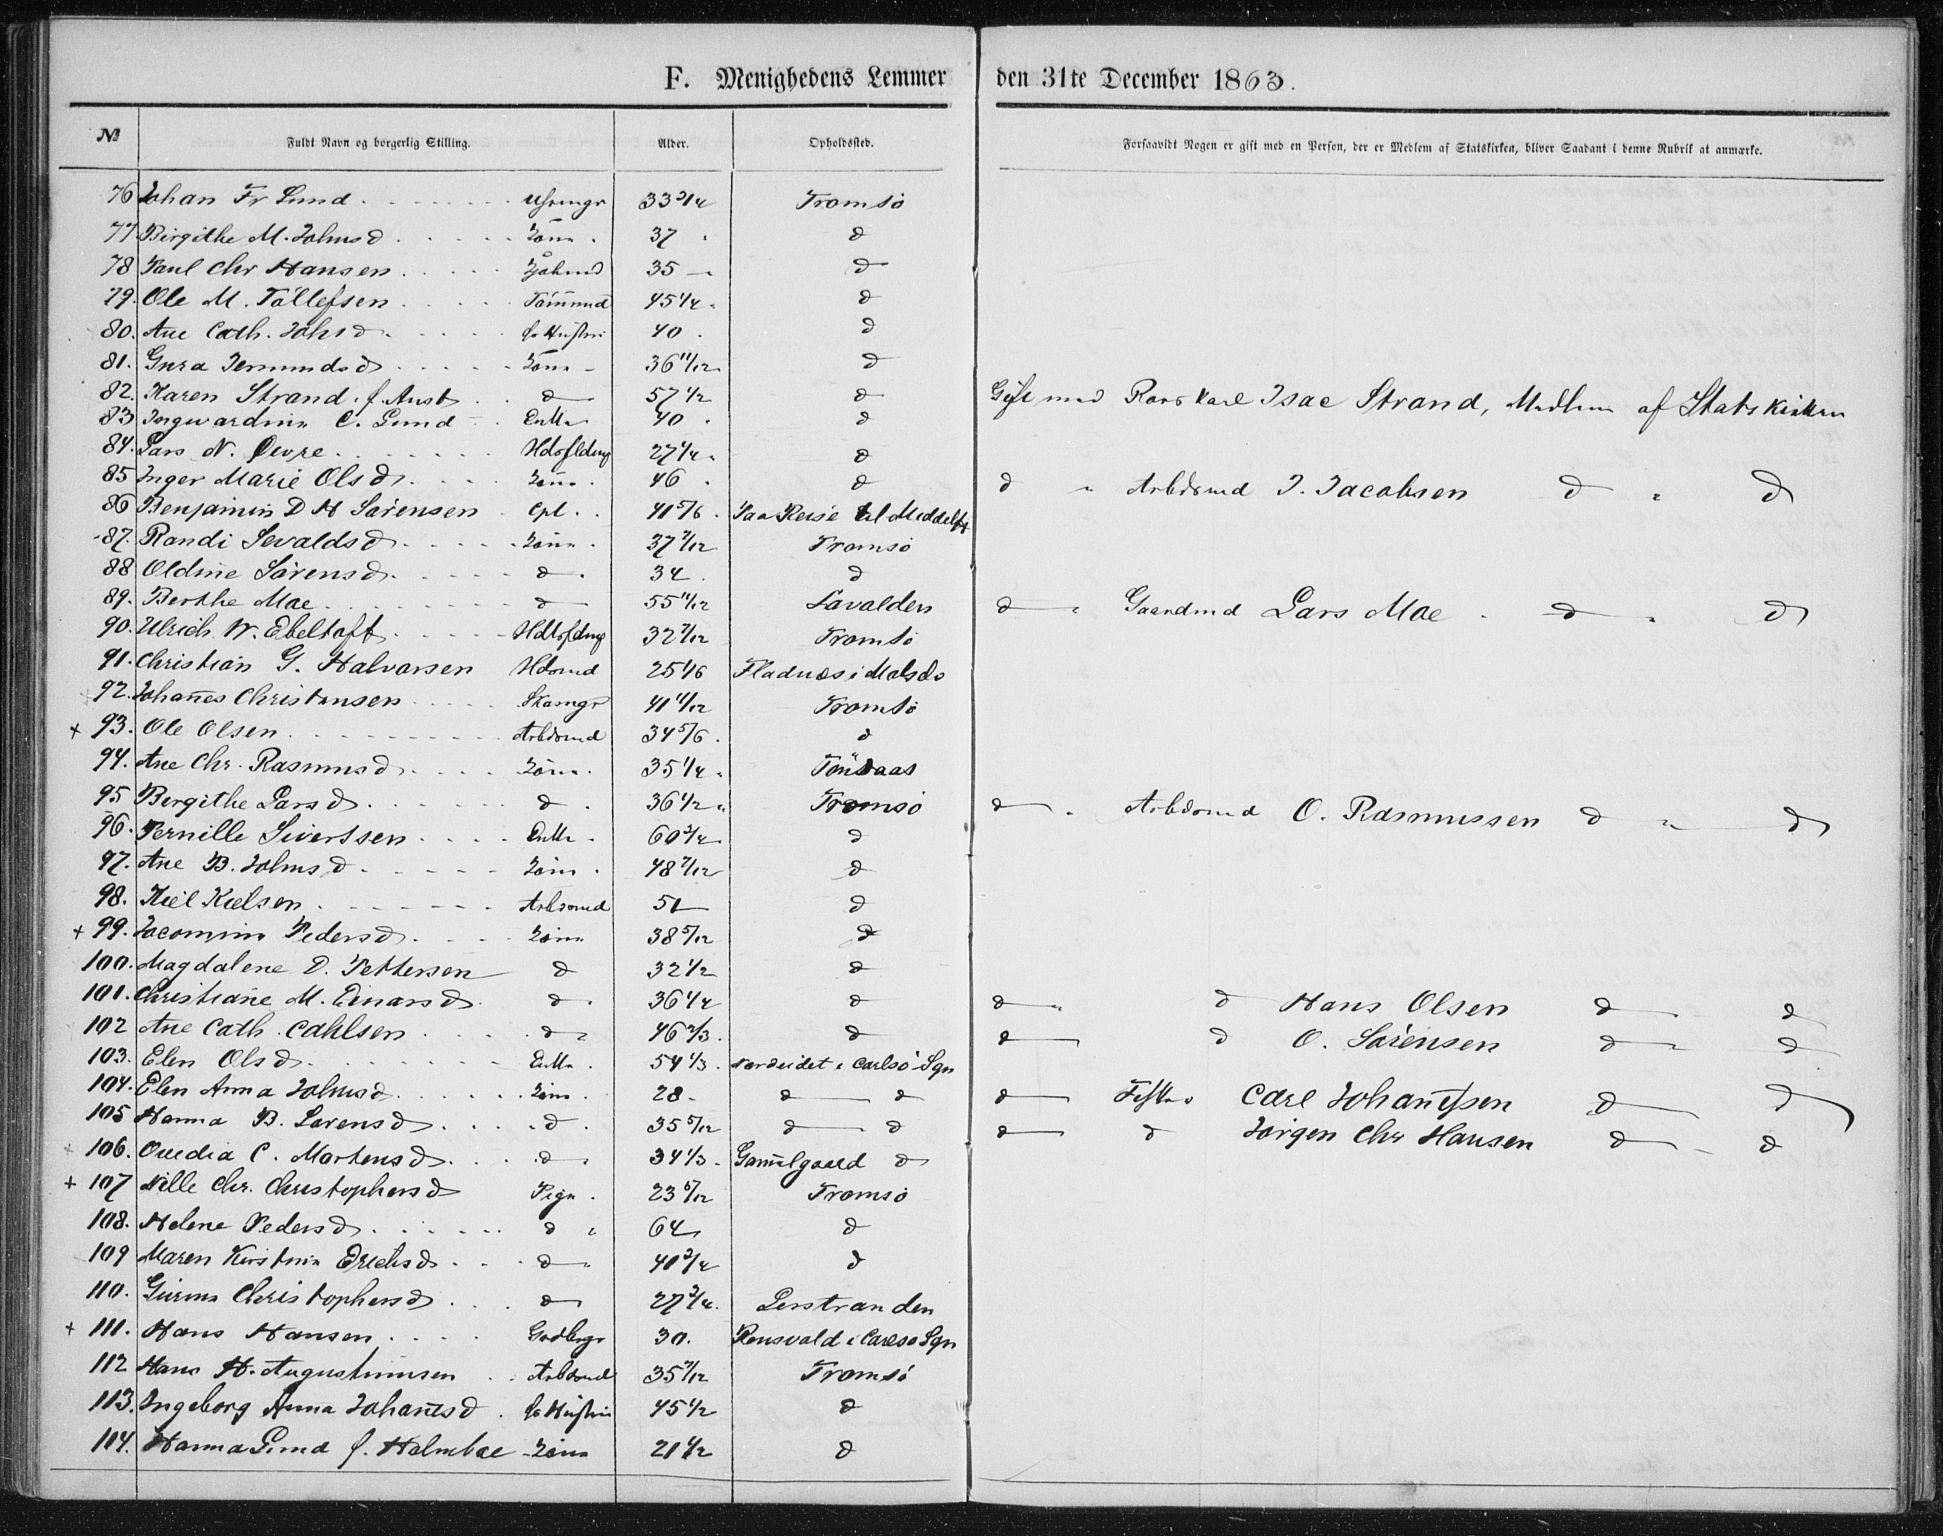 F. Menighedens Lemmer den 31te December 1863.
№ Fuldt Navn og borgerlig Stilling. Alder. Opholdssted. Forsaavidt Nogen er gift med en Person, der er Medlem af Statskirken, bliver Saadant i denne Rubrik at anmærke.
76 Johan Fr Lund 33 3/4 Tromsö
77 Birgithe M. Johnsd 37 d
78 Paul Chr Hansen 35 d
79. Ole M. Tollefsen Tömmd 45 1/4 d
80. Ane Cath. Johsd Hustru 40 d
81. Gura Jermundsd 36 11/12 d
82. Karen Strand f. Aust d 57 1/2 d Gift med Rorskarl Isac Strand, Medlem af Statskirken
83 Ingwardine C. Lund Enke 40 d
84. Lars N. Øwre 27 1/4 d
85 Inger Marie Olsd 46 d d Arbdmd J. Jacobsen d d
86 Benjamin D H Sørensen Cpt. 41 5/6 Paa Reise til Middelh
87. Randi Sevaldsd 37 7/12 Tromsö
88 Oldine Sørensd d 34 d
89. Berthe Moe d 55 11/12 Lavalden d Gaardmd Lars Moe d d
90. Ulrich W. Ebeltoft 32 7/12 Tromsö
91. Christian G. Halvorsen Hdsmd 25 1/6 Fladnæs i Malsds
92. Johanes Christensen 41 11/12 Tromsö
+ 93. Ole Olsen Arbdsmd 34 5/6 d
94. Ane Chr. Rasmusd 35 1/4 Tönsaas
95 Bergithe Larsd d 36 1/2 Tromsö d Arbdsmd O. Rasmussen d d
96. Pernille Sivertsen Enke 60 3/4 d
97. Ane B. Johnsd 48 7/12 d
98. Kiel Kielsen Arbdsmd 51 d
+ 99. Jacomine Pedersd 38 5/12 d
100. Magdalene D. Pettersen d 32 1/2 d
101. Christiane M. Einarsd d 36 1/4 d d d Hans Olsen d d
102 Ane Cath. Cahlsen d 46 2/3 d d d O. Sørensen d d
103. Elen Olsd Enke 54 1/3 Nordeidet i Carlsö Sgn
104. Elen Anna Johnsd 28 d d d Fisker Carl Johanesen d d
105 Hanna B. Sorensd d 35 5/12 d d d d Jørgen Chr Hansen d d
+ 106. Ouedia C. Mortensd d 34 1/3 Gamelgaard d
+ 107 Nille Chr. Christophersd Pige 23 5/12 Tromsö
108. Helene Pedersd d 64 d
109 Maren Kirstine Erichsd d 40 3/4 d
110. Gurine Christophersd d 27 3/4 Lerstranden
+ 111. Hans Hansen Grdbrgr 30. Rensvold i Carlsö Sgn
112 Hans H. Augustinusen Arbdsmd 35 7/12 Tromsö
113. Ingeborg Anna Johanesd Hustru 45 1/2 d
114. Hanna Lund f. Holmboe 21 1/2 d